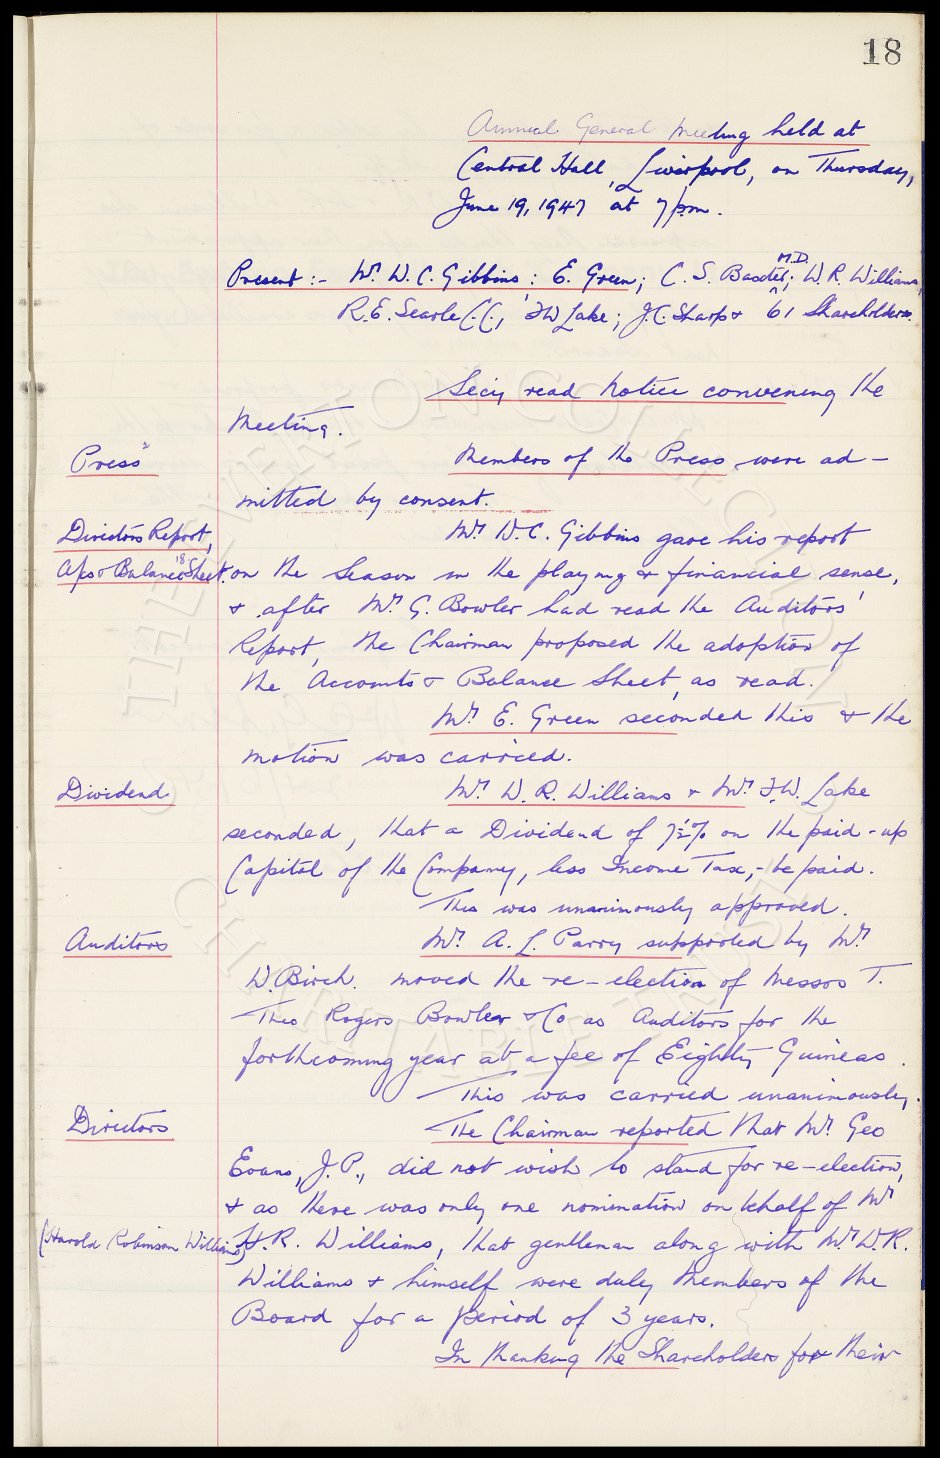 18
Annual General Meeting held at
Central Hall, Liverpool, on Thursday,
June 19, 1947 at 7 p.m.
M.D.
Present :- Mr W. C. Gibbins : E. Green; C. S. Baxter; W. R. Williams,
R. E. Searle C.C., F W Lake; J. C. Sharp & 61 Shareholders.
Secy read Notice convening the
Meeting.
Press
Members of the Press were ad-
mitted by consent.
Directors Report,
Mr W. C. Gibbins gave his report
A/cs & Balance Sheet.
on the Season in the playing & financial sense,
& after Mr G. Bowler had read the Auditors'
Report, the Chairman proposed the adoption of
the Accounts & Balance Sheet, as read.
Mr E. Green seconded this & the
motion was carried.
Dividend
Mr W. R. Williams & Mr F. W. Lake
seconded, that a Dividend of 7½% on the paid-up
Capital of the Company, less Income Tax, be paid.
This was unanimously approved.
Auditors
Mr A. L. Parry supported by Mr
W. Birch. moved the re-election of Messrs T.
Theo Rogers Bowler & Co as Auditors for the
forthcoming year at a fee of Eighty Guineas.
This was carried unanimously.
Directors
The Chairman reported that Mr Geo
Evans, J.P., did not wish to stand for re-election,
& as there was only one nomination on behalf of Mr
(Harold Robinson Williams)
H. R. Williams, that gentleman along with Mr W. R.
Williams & himself were duly Members of the
Board for a period of 3 years.
In thanking the Shareholders for their
THE EVERTON COLLECTION
CHARITABLE TRUST